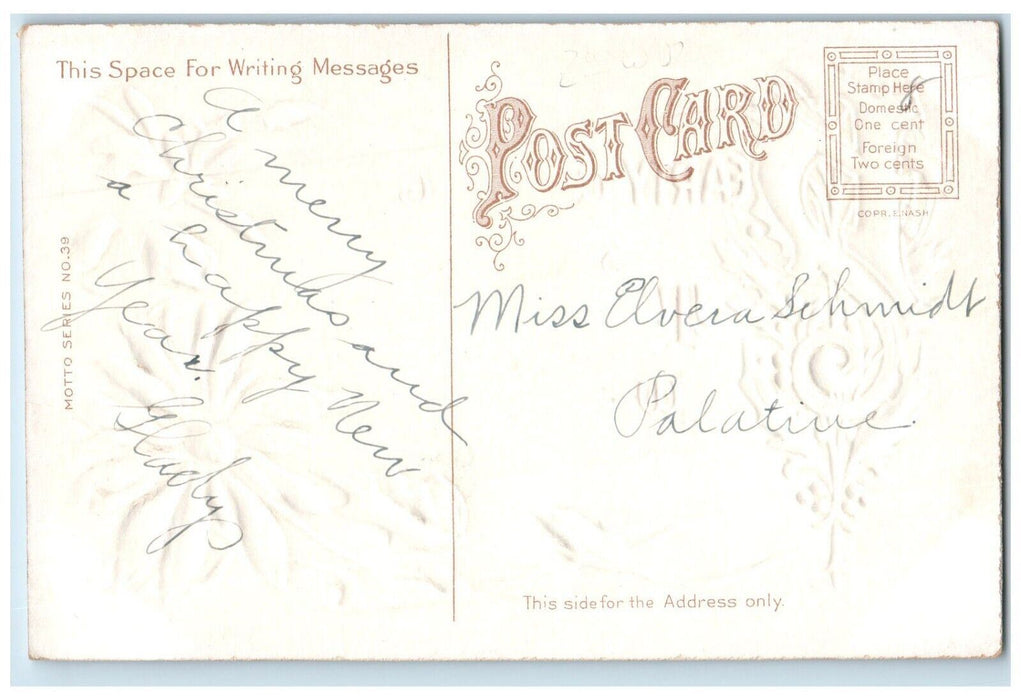 This Space For Writing Messages
A merry
Christmas and
a happy New
Year.
Gladys
MOTTO SERIES NO.39
POST CARD
Place
Stamp Here
Domestic
One cent
Foreign
Two cents
COPR. E. NASH
Miss Elvera Schmidt
Palatine.
This side for the Address only.